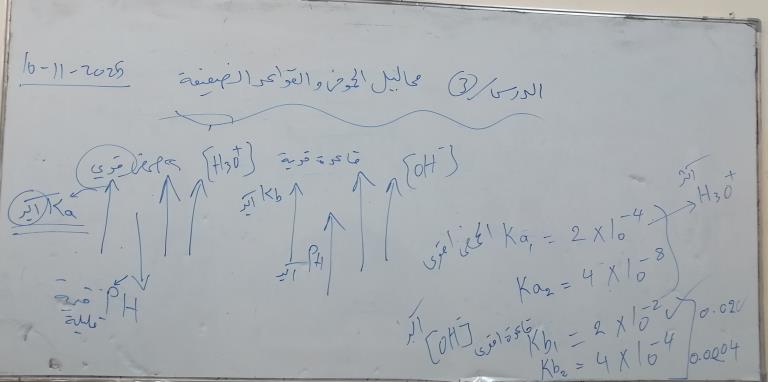 16-11-2025
الدرس/ ③ محاليل الحموض والقواعد الضعيفة
حمض قوي [H3O+] قاعدة قوية [OH-]
أكبر Ka
أكبر Kb
PH قيمة قليلة
PH أكبر
أكبر H3O+
الحمض أقوى Ka1 = 2 × 10^-4
Ka2 = 4 × 10^-8
أكبر [OH-] قاعدة أقوى Kb1 = 2 × 10^-2 0.020
Kb2 = 4 × 10^-4 0.0004